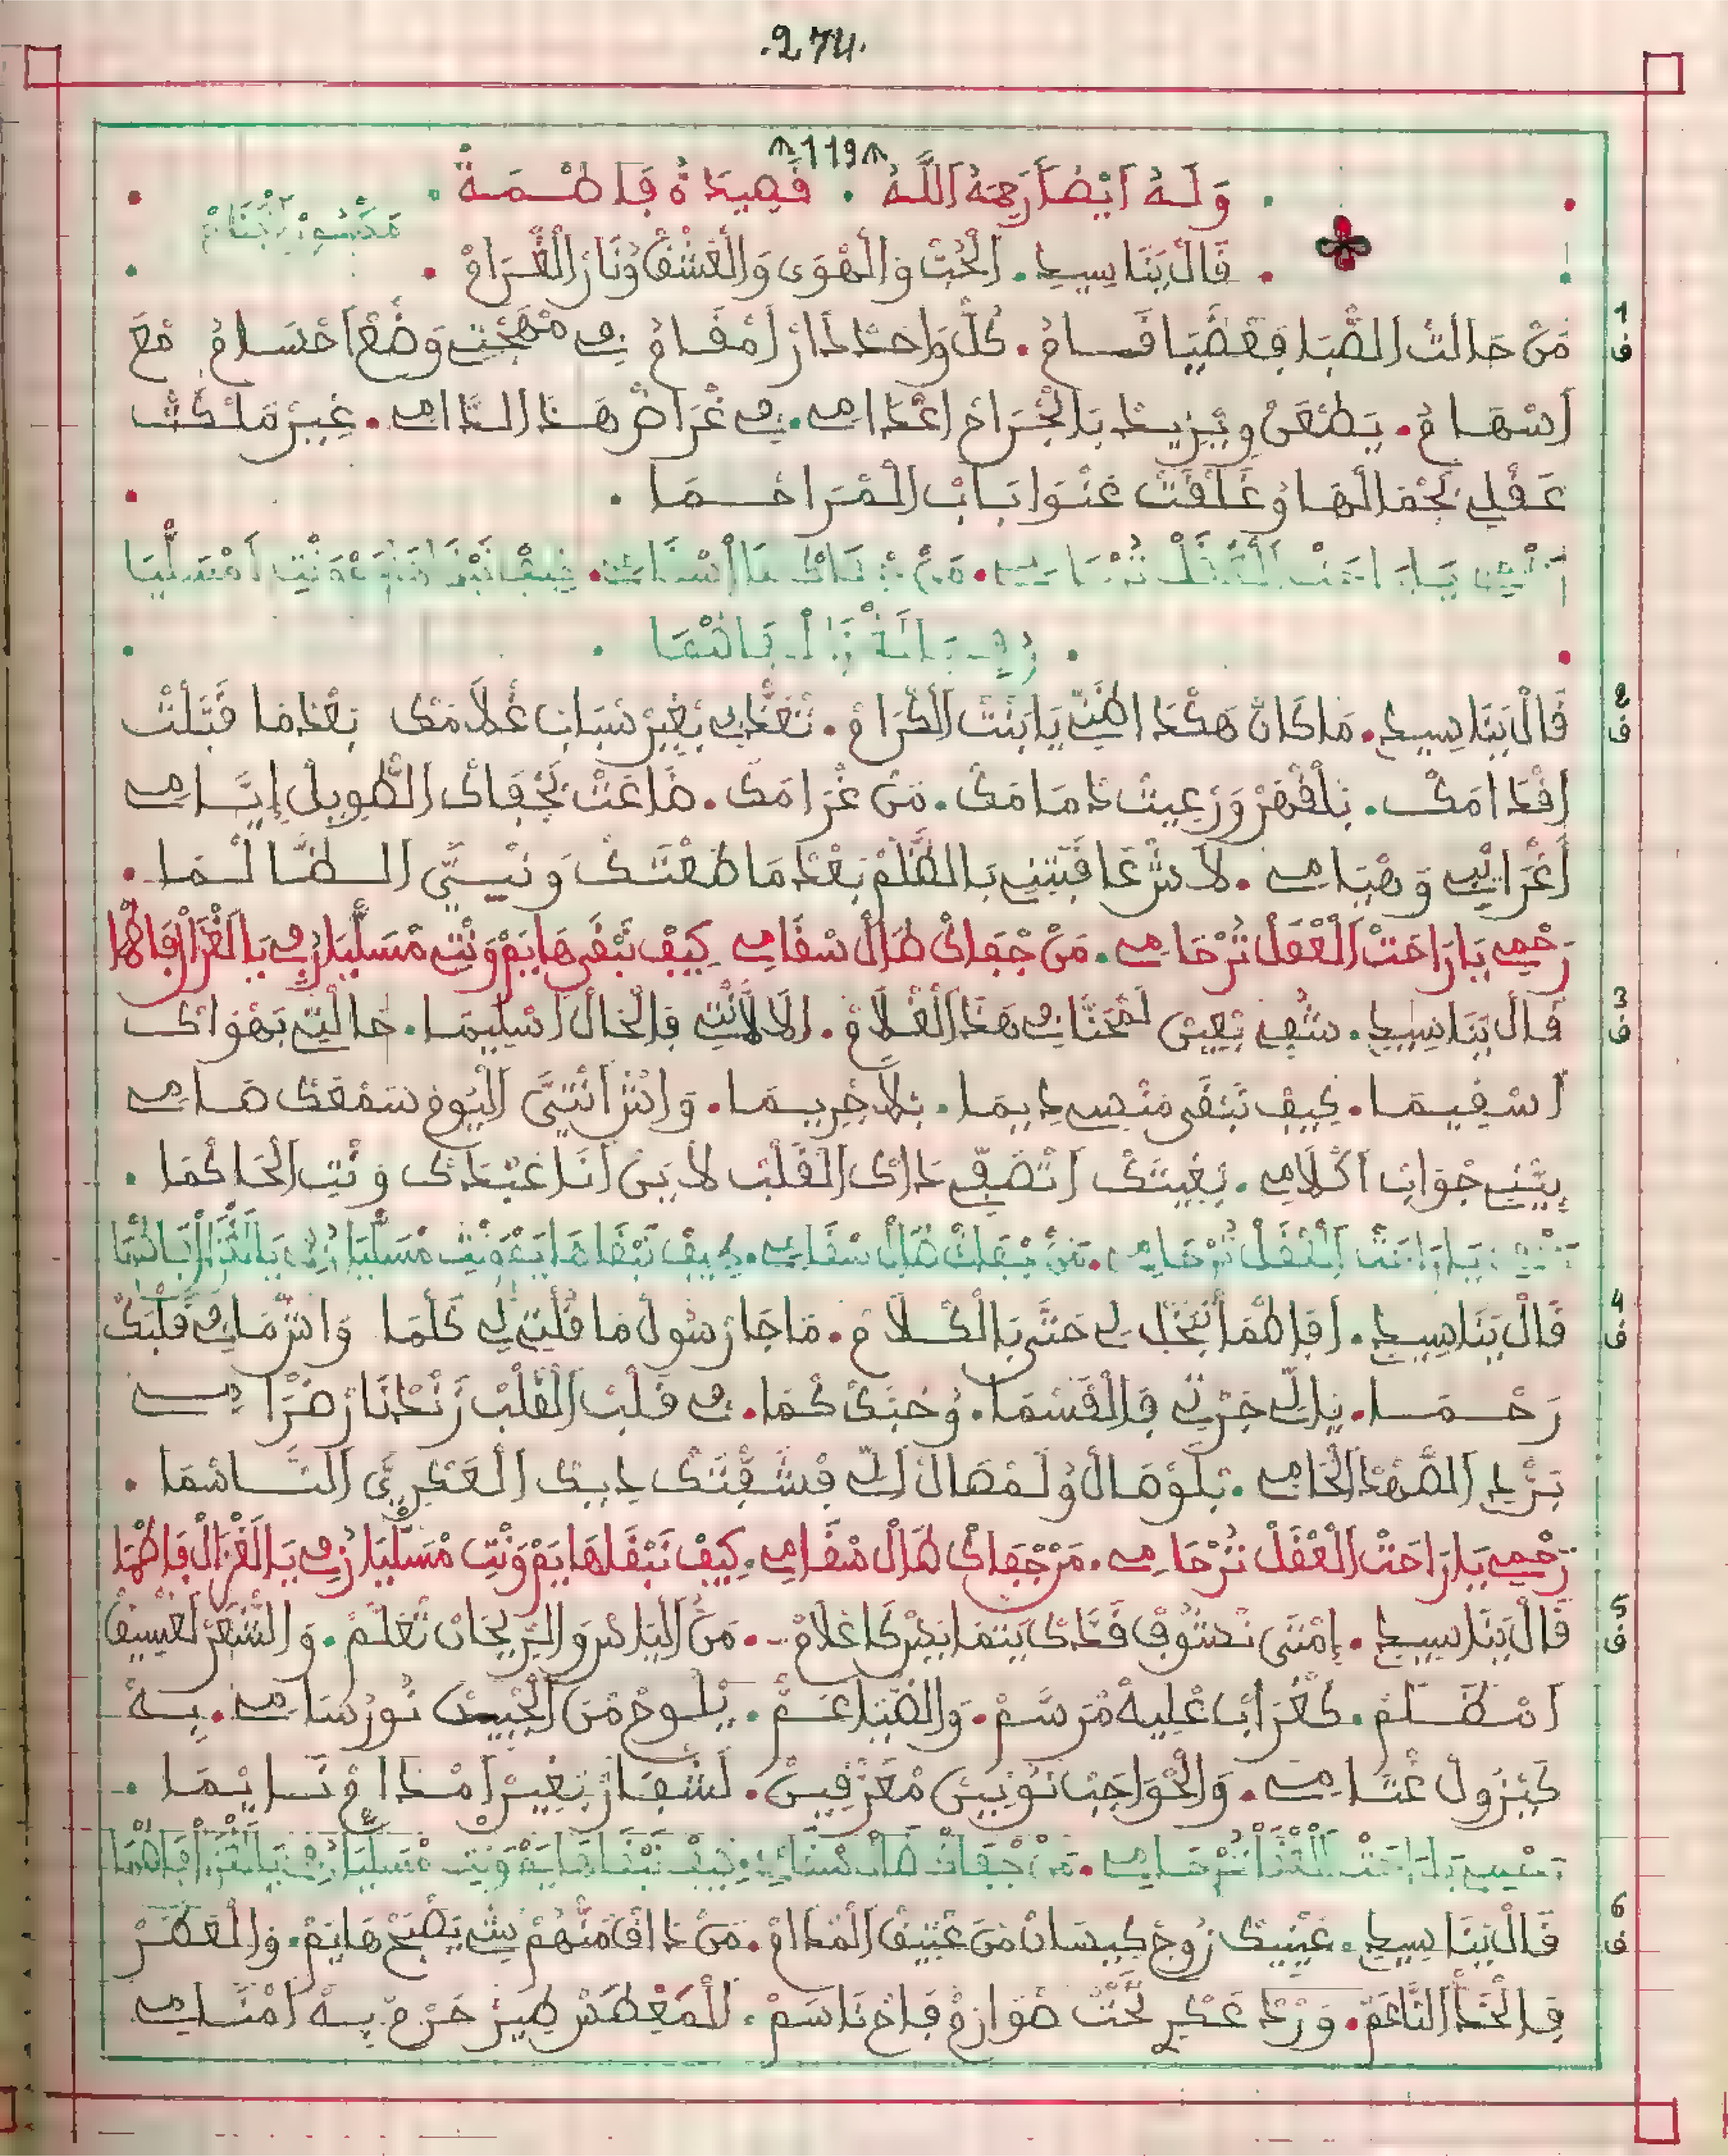 .274.
119
وَلَهُ اَيْضًا رَحِمَهُ اللَّهُ . قَصِيدَةُ فَاطْمَةْ
قَالْ بَنَّاسِيدِ . الْحُبّْ وَالْهْوَى وَالْعَشْقْ وْنَارْ الْغْرَامْ
1 ف مَنْ حَالْتْ الصّْبَا فَعْضَيَا قْسَامْ . كُلّْ وَاحَدْ دَارْ اَمْقَامْ فِي مْهَجْتِي وَضْعْ اَحْسَامْ مْعَ
اَسْهَامْ . يَطْعَنْ وِيْزِيدْ بَالْجْرَاحْ اعْدَامِي . فِي غْرَاضْ هَذَا الدَّامِي . غِيرْ مَلْكَتْ
عَقْلِي بَجْمَالْهَا وْغَلْقَتْ عَنْوَا بَابْ الْمْرَاحْمَا .
رَحْمِي يَا رَاحَتْ الْعْقَلْ تْرْحَامِي . مَنْ جْفَاكْ طَالْ سْقَامِي . كِيفْ نَبْقَى هَايَمْ وَنْتِ اَمْسَلْيَا
رُوفِي يَا الْغْزَالْ فَاطْمَا
2 ف قَالْ بَنَّاسِيدِ . مَا كَانْ هَكْدَا ظَنِّي يَا بَنْتْ الْكْرَامْ . تْعَذّْبِي بْغِيرْ سْبَابْ غُلَامَكْ بَعْدْ مَا قَبَّلْتْ
اقْدَامَكْ . بَلْقْهَرْ وَرْعِيتْ دْمَامَكْ . مَنْ غْرَامَكْ . ضَاعَتْ بَجْفَاكْ الطّْوِيلْ اِيَّامِي
اَغْرَايْبِي وَهْيَامِي . لَاشْ عَاقَبْتِنِي بَالظُّلْمْ بَعْدْ مَا طَعْتَكْ وَنْتِيَّ الظَّالْمَا .
رَحْمِي يَا رَاحَتْ الْعْقَلْ تْرْحَامِي . مَنْ جْفَاكْ طَالْ سْقَامِي كِيفْ نَبْقَى هَايَمْ وَنْتِ مْسَلْيَا رُوفِي يَا الْغْزَالْ فَاطْمَا
3 ف قَالْ بَنَّاسِيدِ . شُفِي بْعِينْ لَمْحَنَّا فِي هَذَا الْغْلَامْ . اَلَالَّا نْتِ فَالْحَالْ اسْلِيمَا . حَالْتِي بَهْوَاكْ
اَسْقِيمَا . كِيفْ نَبْقَى مَنْسِي دِيمَا . بْلَا جْرِيمَا . وَاشْ اَنْتِيَّ الْيُومْ سَمْعَكْ هَامِي
بِيّْنِي جْوَابْ اكْلَامِي . بَغْيَتَكْ اَتْصَفِّي دَاكْ الْقَلْبْ لَايَنْ اَنَا عَبْدَكْ وَنْتِ الْحَاكْمَا .
رَحْمِي يَا رَاحَتْ الْعْقَلْ تْرْحَامِي . مَنْ جْفَاكْ طَالْ سْقَامِي . كِيفْ نَبْقَا هَايَمْ وَنْتِ مْسَلْيَا رُوفِي يَا الْغْزَالْ فَاطْمَا
4 ف قَالْ بَنَّاسِيدِ . اَفَاطْمَا تَبْخْلِ لِي حَتَّى بَالْكْلَامْ . مَا جَا رْسُولْ مَا قُلْتِ لِي كَلْمَا وَاشْ مَا فِي قَلْبَكْ
رَحْمَا . يَاكْ اللِّي جْرَى لِي فَالْقَسْمَا . وْحُبَّكْ كْمَا . فِي قَلْبْ الْقَلْبْ زَنْدْ نَارْ ضْرَامِي
بَرّْدِي الصَّهْدْ الْحَامِي . بَلْوْصَالْ وْلَمْصَالْ اللِّي فْشَفّْتَكْ دِيكْ الْعَكْرِيَّ النَّاسْمَا .
رَحْمِي يَا رَاحَتْ الْعْقَلْ تْرْحَامِي . مَنْ جْفَاكْ طَالْ سْقَامِي . كِيفْ نَبْقَا هَايَمْ وَنْتِ مْسَلْيَا رُوفِي يَا الْغْزَالْ فَاطْمَا
5 ف قَالْ بَنَّاسِيدِ . اِمْتَى نْشُوفْ قَدَّكْ يَتْمَايَدْ كَاعْلَامْ . مَنْ الْيَاسْ وَالرِّيحَانْ تْعَلَّمْ . وَالشّْعَرْ لَغْسِيقْ
اَمْظَلَّمْ . كَغْرَابْ عْلِيهْ مْرَسَّمْ . وَالضّْيَا عَمّْ . يْلُوحْ مْنَ الْجْبِينْ نُورْ سَامِي . بِهْ
كَيْزُولْ غْتَامِي . وَالْحْوَاجَبْ نُونِينْ مْعَرّْقِينْ . لَشْفَارْ بْغِيرْ اَمْدَامْ نَايْمَا .
رَحْمِي يَا رَاحَتْ الْعْقَلْ تْرْحَامِي . مَنْ جْفَاكْ طَالْ سْقَامِي . كِيفْ نَبْقَا هَايَمْ وَنْتِ مْسَلْيَا رُوفِي يَا الْغْزَالْ فَاطْمَا
6 ف قَالْ بَنَّاسِيدِ . عَيْنِيكْ زُوجْ كِيسَانْ مَنْ عْتِيقْ الْمْدَامْ . مَنْ دَاقْ مَنْهُمْ شِي يَصْبَحْ هَايَمْ . وَالْعْطَرْ
فَالْخَدّْ النَّاعَمْ . وَرْدْ عَكْرِي تَحْتْ صْوَارَمْ فَاحْ نَاسَمْ . لَلْمَعْطَسْ طِيرْ حَرّْ بِهْ اَمْثَالِي